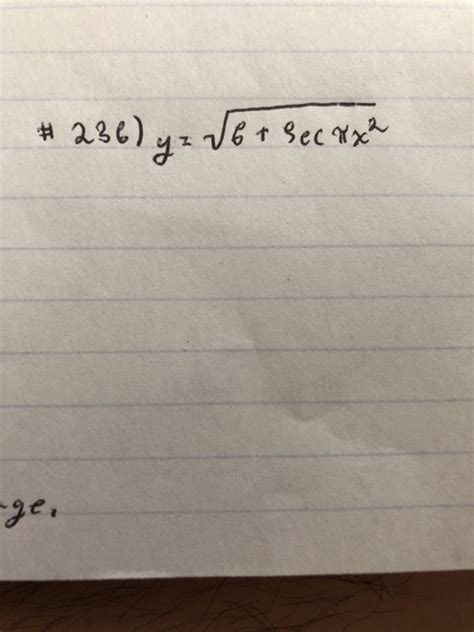 # 236) y = √6 + sec πx²
-ge.